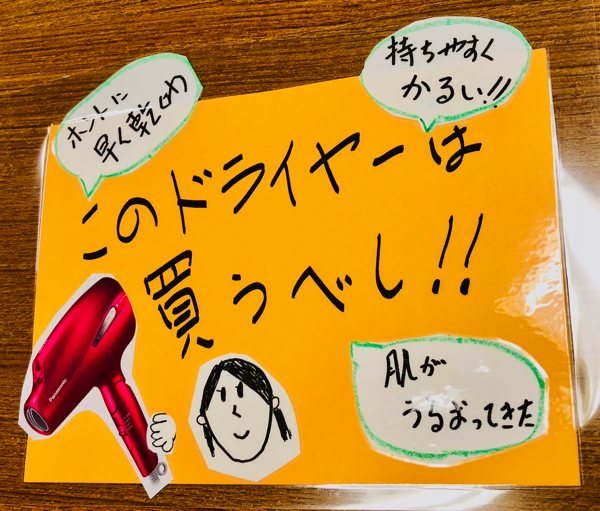 ホントに
早く乾くわ
持ちやすく
かるい!!
このドライヤーは
買うべし!!
Panasonic
肌が
うるおってきた